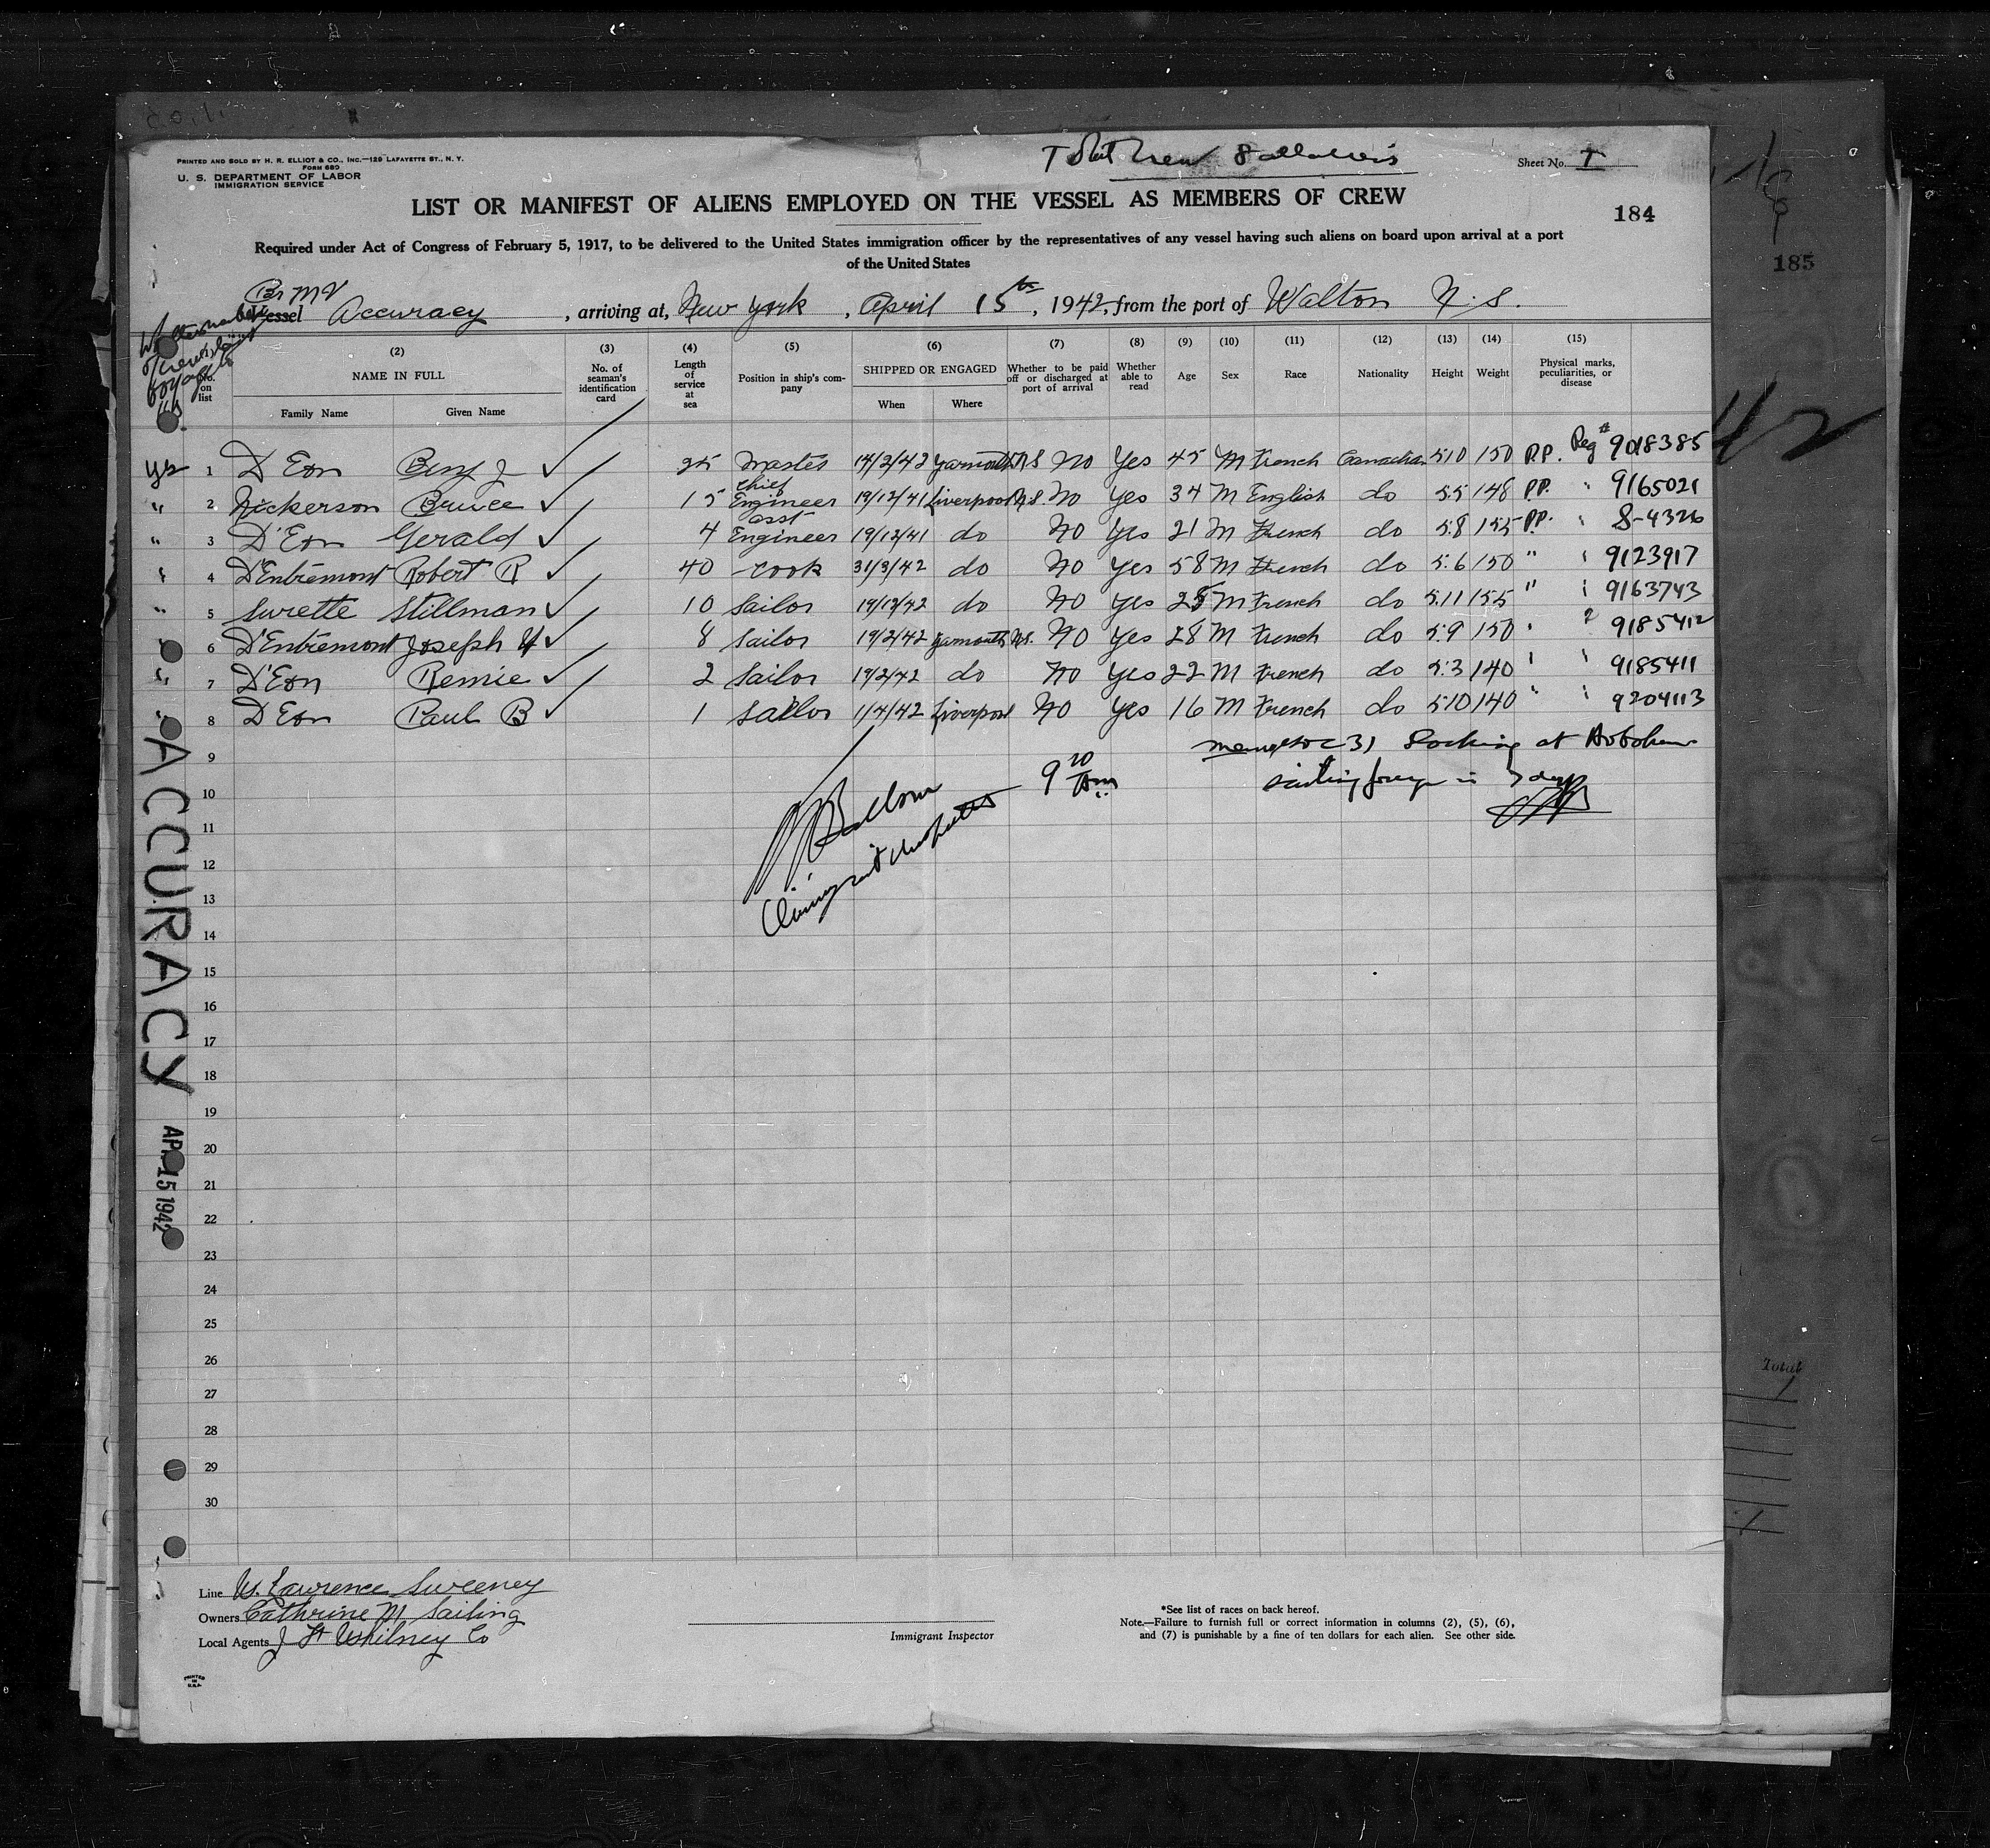 PRINTED AND SOLD BY H. R. ELLIOT & CO., INC.—129 LAFAYETTE ST., N. Y.
FORM 689
U. S. DEPARTMENT OF LABOR
IMMIGRATION SERVICE
Sheet No. I
LIST OR MANIFEST OF ALIENS EMPLOYED ON THE VESSEL AS MEMBERS OF CREW
184
185
Required under Act of Congress of February 5, 1917, to be delivered to the United States immigration officer by the representatives of any vessel having such aliens on board upon arrival at a port
of the United States
Br MV
Vessel Accuracy, arriving at, New York, April 15th, 1942, from the port of Walton N.S.
(2) (3) (4) (5) (6) (7) (8) (9) (10) (11) (12) (13) (14) (15)
No. on list NAME IN FULL No. of seaman's identification card Length of service at sea Position in ship's company SHIPPED OR ENGAGED Whether to be paid off or discharged at port of arrival Whether able to read Age Sex Race Nationality Height Weight Physical marks, peculiarities, or disease
Family Name Given Name When Where
yes 1 D'Eon Benj J 25 Master 14/2/42 Yarmouth N.S No Yes 45 M French Canadian 5.10 150 P.P. Reg # 9018385
" 2 Nickerson Bruce 15 Chief Engineer 19/12/41 Liverpool N.S. No Yes 34 M English do 5.5 148 P.P. " 9165021
" 3 D'Eon Gerald 4 asst Engineer 19/12/41 do No Yes 21 M French do 5.8 155 P.P. " 8-4326
" 4 D'Entremont Robert R 40 Cook 31/3/42 do No Yes 58 M French do 5.6 150 " " 9123917
" 5 Surette Stillman 10 Sailor 19/12/42 do No Yes 28 M French do 5.11 155 " " 9163743
" 6 D'Entremont Joseph H 8 Sailor 19/2/42 Yarmouth N.S. No Yes 28 M French do 5.9 150 " " 9185412
" 7 D'Eon Remie 2 Sailor 19/2/42 do No Yes 22 M French do 5.3 140 " " 9185411
" 8 D'Eon Paul B 1 Sailor 1/4/42 Liverpool No Yes 16 M French do 5.10 140 " " 9204113
9
Docking at Hoboken
10
9 20 Am
in 7 days
11
12
Immigrant Inspector
13
14
15
16
17
18
19
20
21
22
23
24
25
26
27
28
29
30
ACCURACY
APR 15 1942
42
Total
Line W. Lawrence Sweeney
Owners Cathrine M Sailing
Local Agents J H Whitney Co
Immigrant Inspector
*See list of races on back hereof.
Note.—Failure to furnish full or correct information in columns (2), (5), (6),
and (7) is punishable by a fine of ten dollars for each alien. See other side.
PRINTED
IN
U.S.A.